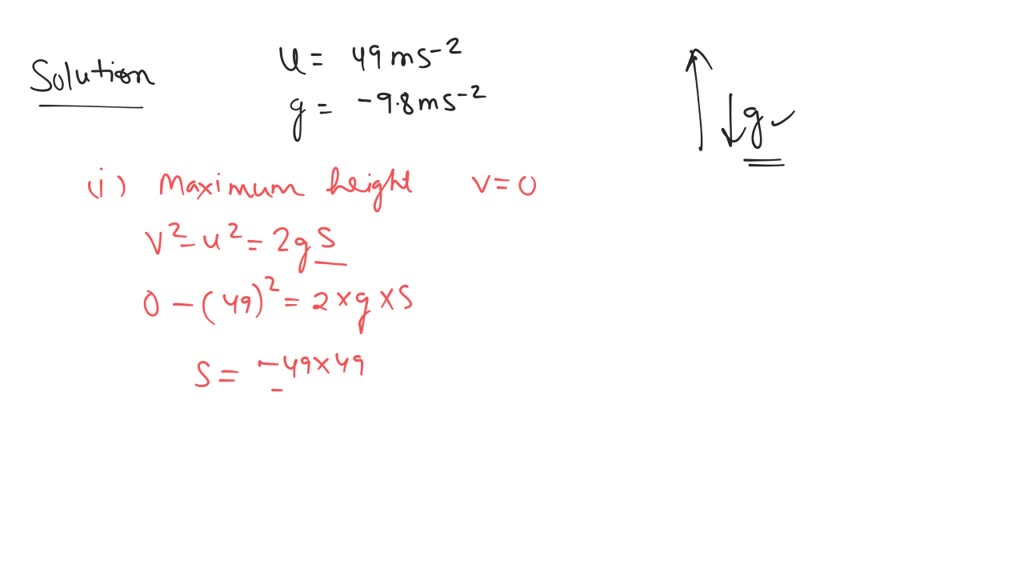 Solution
u = 49 ms⁻²
g = -9.8 ms⁻²
↓g
(i) Maximum height v=0
v² - u² = 2gS
0 - (49)² = 2 × g × S
S = -49×49